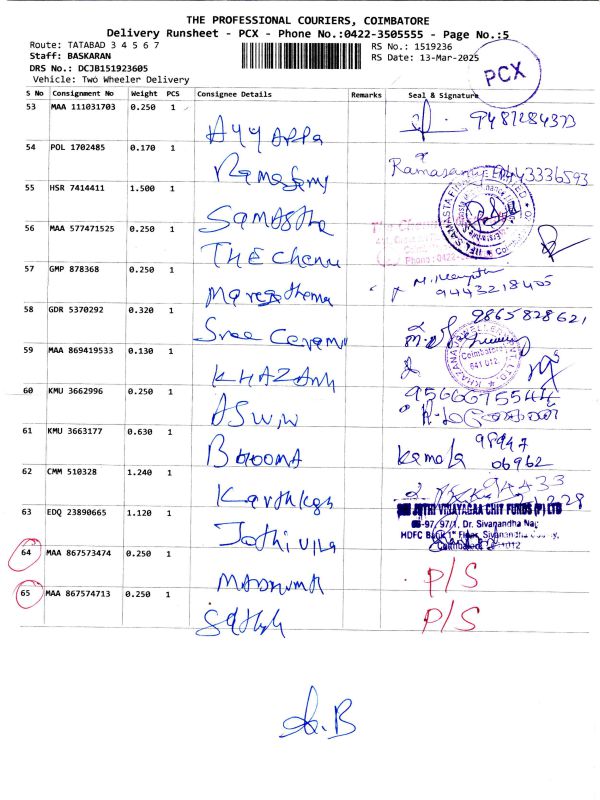 THE PROFESSIONAL COURIERS, COIMBATORE
Delivery Runsheet - PCX - Phone No.:0422-3505555 - Page No.:5
Route: TATABAD 3 4 5 6 7
RS No.: 1519236
Staff: BASKARAN
RS Date: 13-Mar-2025
DRS No.: DCJB151923605
Vehicle: Two Wheeler Delivery
PCX
S No Consignment No Weight PCS Consignee Details Remarks Seal & Signature
53 MAA 111031703 0.250 1
Ayyappa
54 POL 1702485 0.170 1
Ramasamy
Ramasamy
9443336593
55 HSR 7414411 1.500 1
Samastha
56 MAA 577471525 0.250 1
THE Chennu
57 GMP 878368 0.250 1
9443218405
58 GDR 5370292 0.320 1
Sree Ceramu
9865828621
59 MAA 869419533 0.130 1
KHAZANA
Coimbatore
641 012
60 KMU 3662996 0.250 1
ASWIN
9566675544
61 KMU 3663177 0.630 1
BHOOMA
Kamala 98947
06962
62 CMM 510328 1.240 1
Karthikga
63 EDQ 23890665 1.120 1
Jothi Vija
JOTHI VINAYAGAA CHIT FUNDS (P) LTD
-97, 97/1, Dr. Sivanandha Na
HDFC Bank 1st Floor, Sivanandha Colony,
Coimbatore 1012
64 MAA 867573474 0.250 1
P/S
65 MAA 867574713 0.250 1
Sathya
P/S